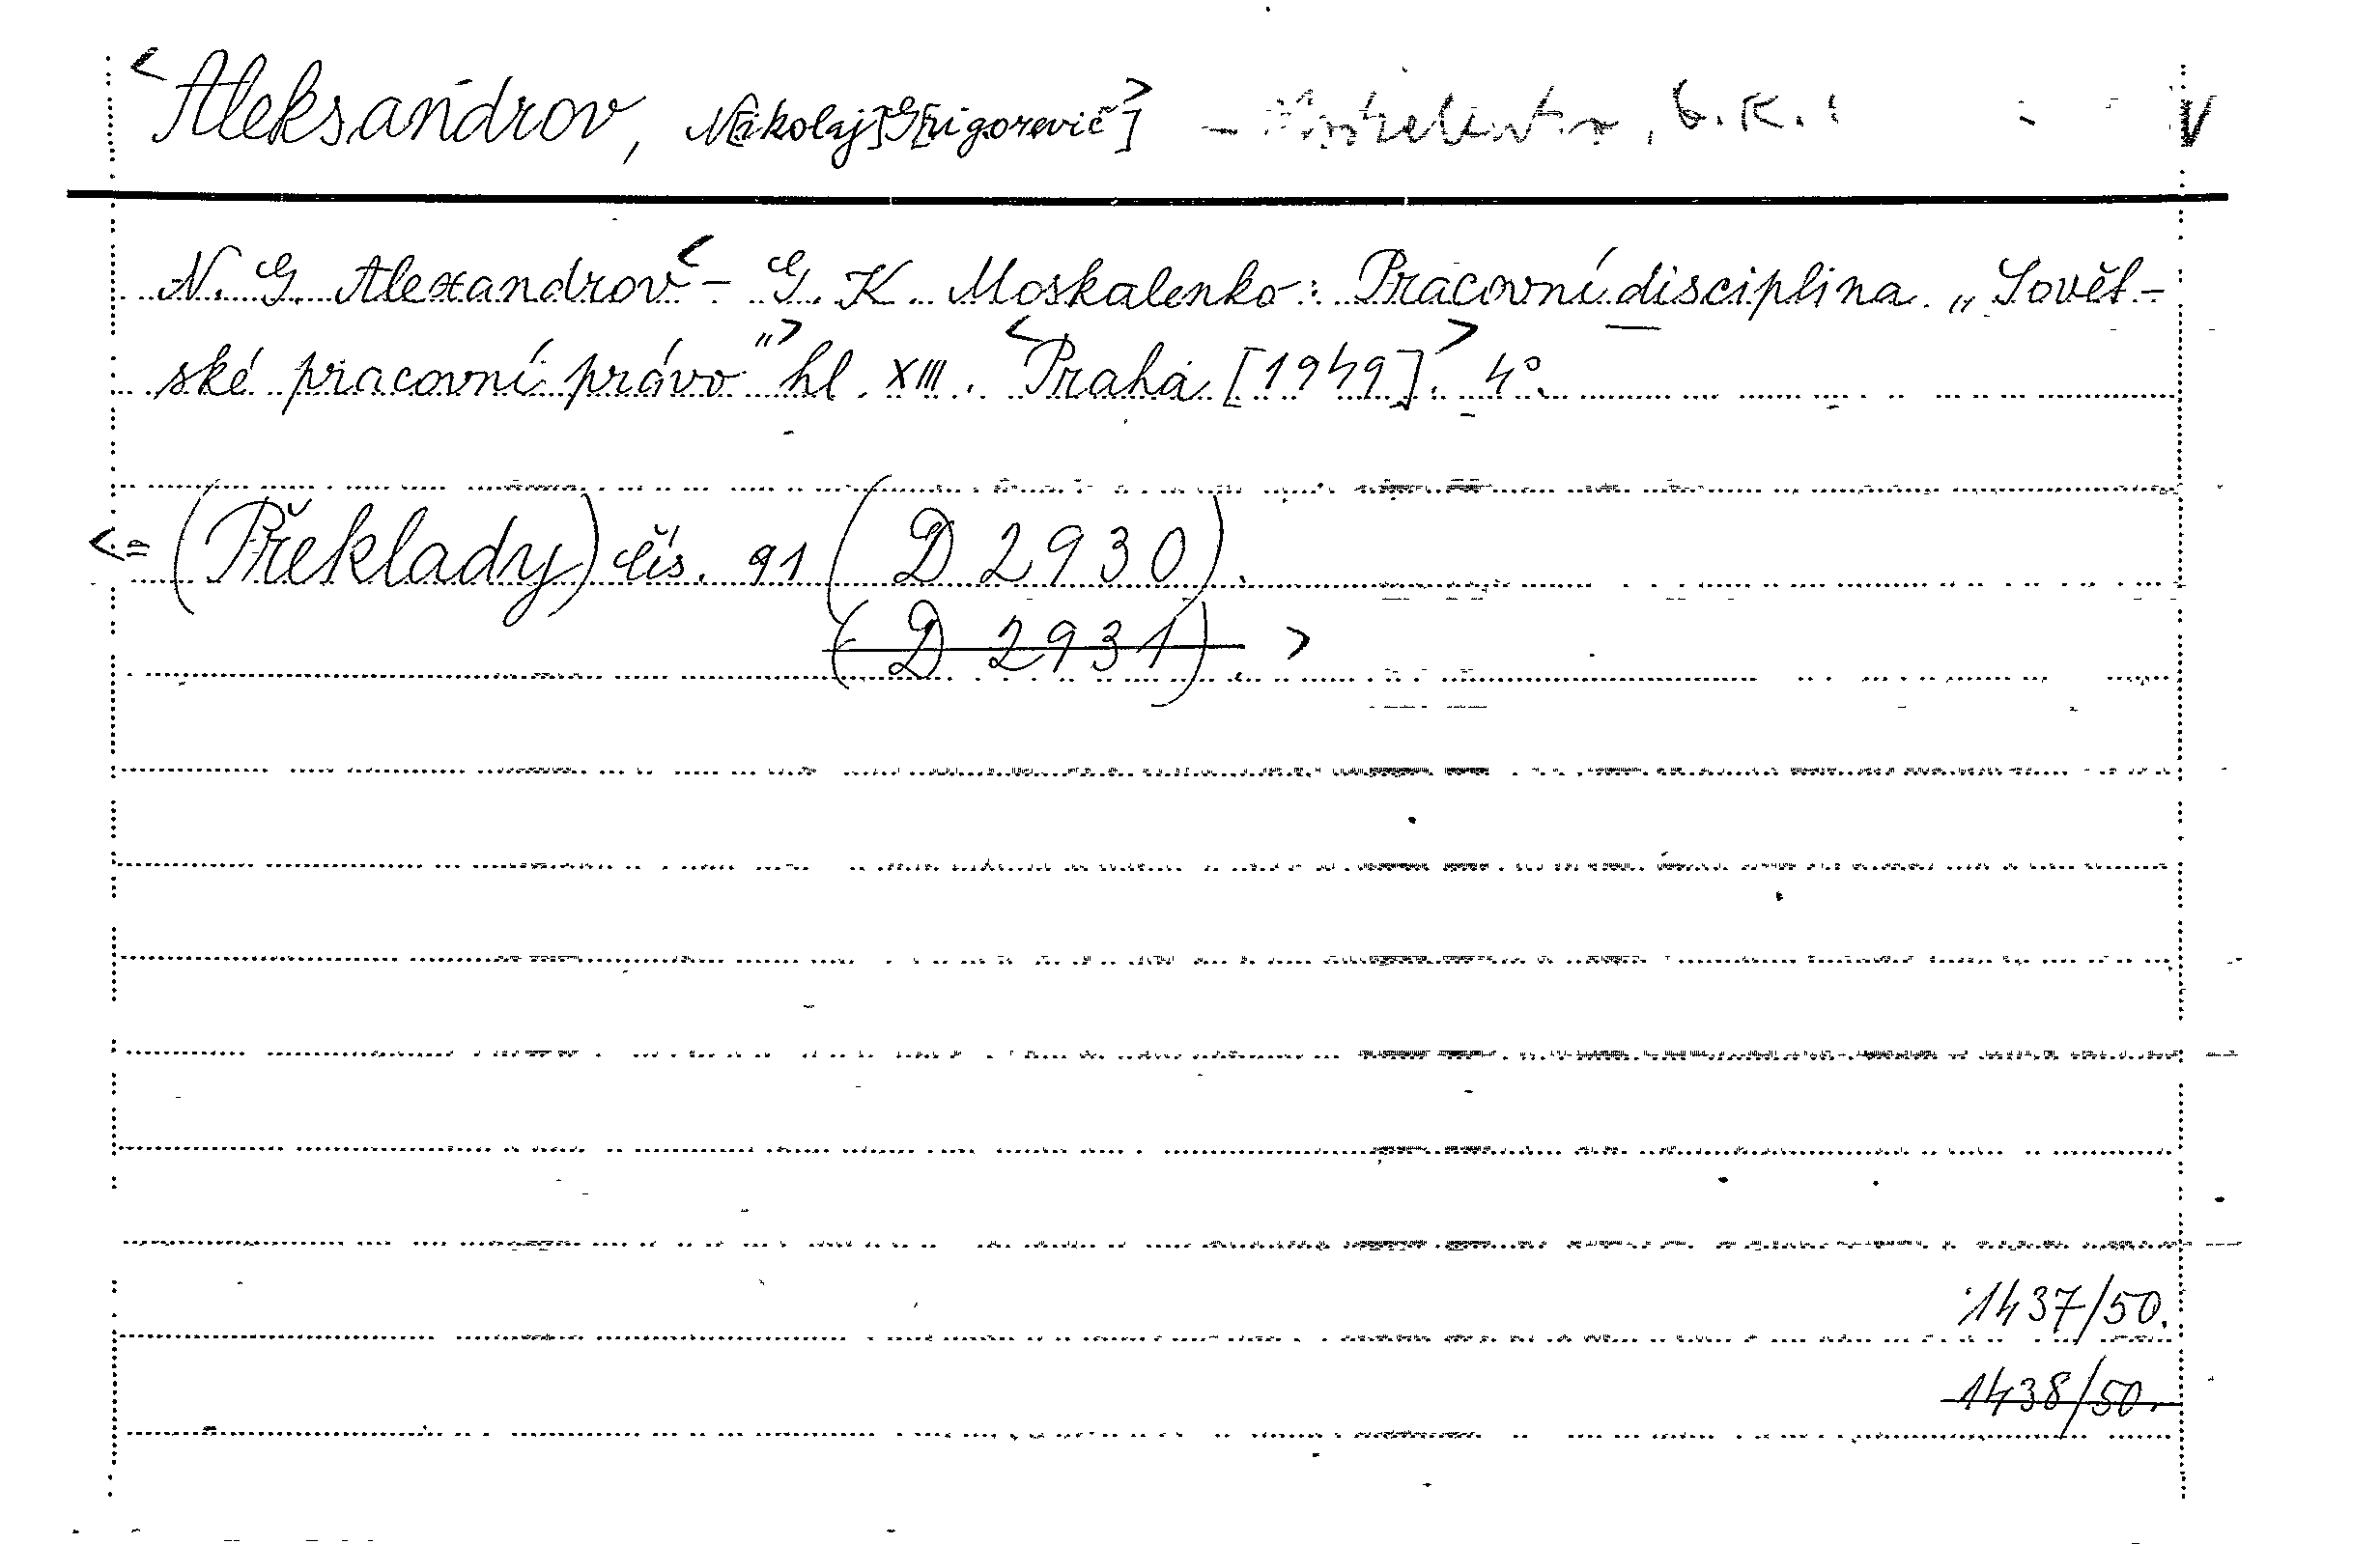 <Aleksandrov, N[ikolaj] G[rigorevič]> - Moskalenko, G. K.: V
N. G. Alexandrov< - G. K. Moskalenko: Pracovní disciplina. „Sovět-
ské pracovní právo"> hl. XIII. <Praha [1949].> 4°.
<= (Překlady) čís. 91 (D 2930).
(D 2931). >
1437/50.
1438/50.